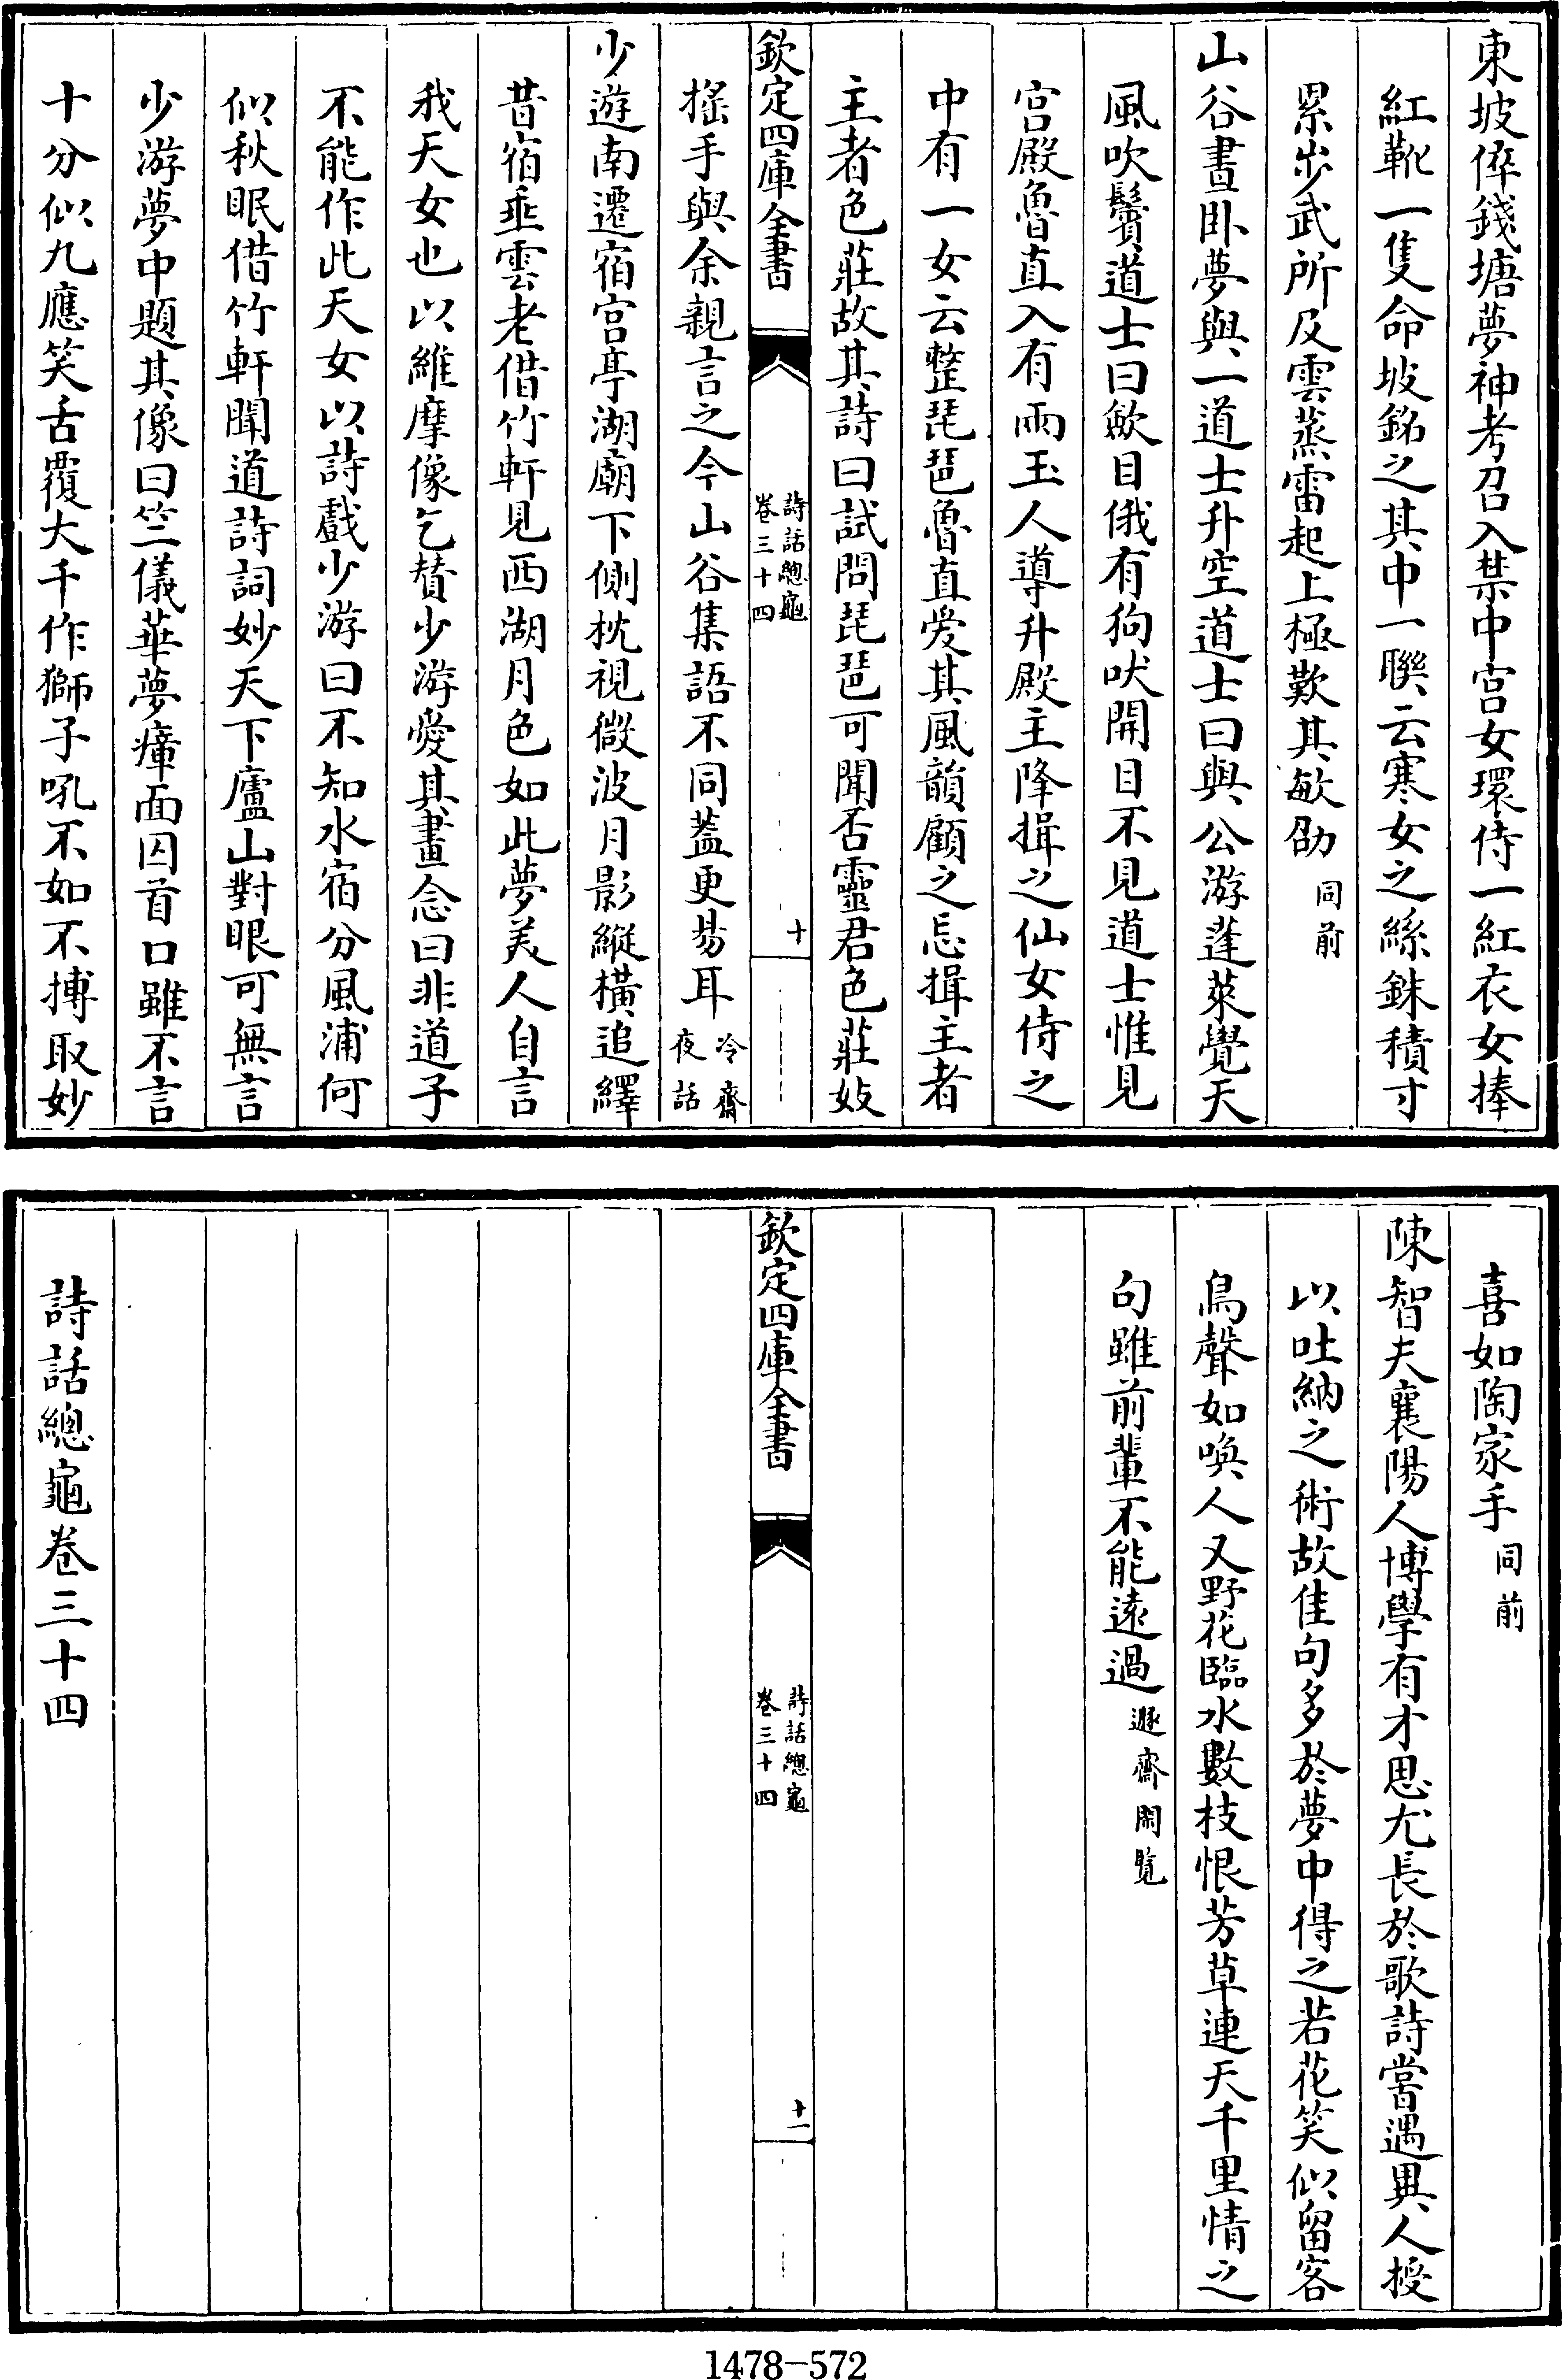 東坡倅錢塘夢神考召入禁中宮女環侍一紅衣女捧
紅靴一隻命坡銘之其中一聯云寒女之絲銖積寸
累步武所及雲蒸雷起上極歎其敏劭同前
山谷晝卧夢與一道士升空道士曰與公游蓬萊覺天
風吹鬢道士曰斂目俄有狗吠開目不見道士惟見
宫殿魯直入有兩玉人導升殿主降揖之仙女侍之
中有一女云整琵琶魯直愛其風韻顧之忘揖主者
主者色莊故其詩曰試問琵琶可聞否靈君色莊妓
欽定四庫全書
詩話總龜
卷三十四
十
摇手與余親言之今山谷集語不同葢更易耳冷齋夜話
少遊南遷宿宫亭湖廟下側枕視微波月影縱橫追繹
昔宿垂雲老借竹軒見西湖月色如此夢美人自言
我天女也以維摩像乞賛少游愛其畫念曰非道子
不能作此天女以詩戲少游曰不知水宿分風浦何
似秋眠借竹軒聞道詩詞妙天下廬山對眼可無言
少游夢中題其像曰竺儀華夢瘴面囚首口雖不言
十分似九應笑舌覆大千作獅子吼不如不搏取妙
喜如陶家手同前
陳智夫襄陽人博學有才思尤長於歌詩嘗遇異人授
以吐納之術故佳句多於夢中得之若花笑似留客
鳥聲如喚人又野花臨水數枝恨芳草連天千里情之
句雖前輩不能遠過遯齋閑覽
欽定四庫全書
詩話總龜
卷三十四
十一
詩話總龜卷三十四
1478-572